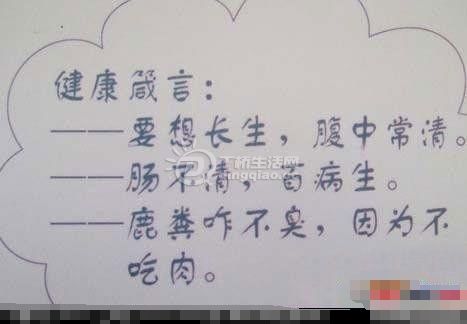 健康箴言：
——要想长生，腹中常清。
——肠不清，百病生。
——鹿粪咋不臭，因为不
吃肉。
工桥生活网
ngqiao.com